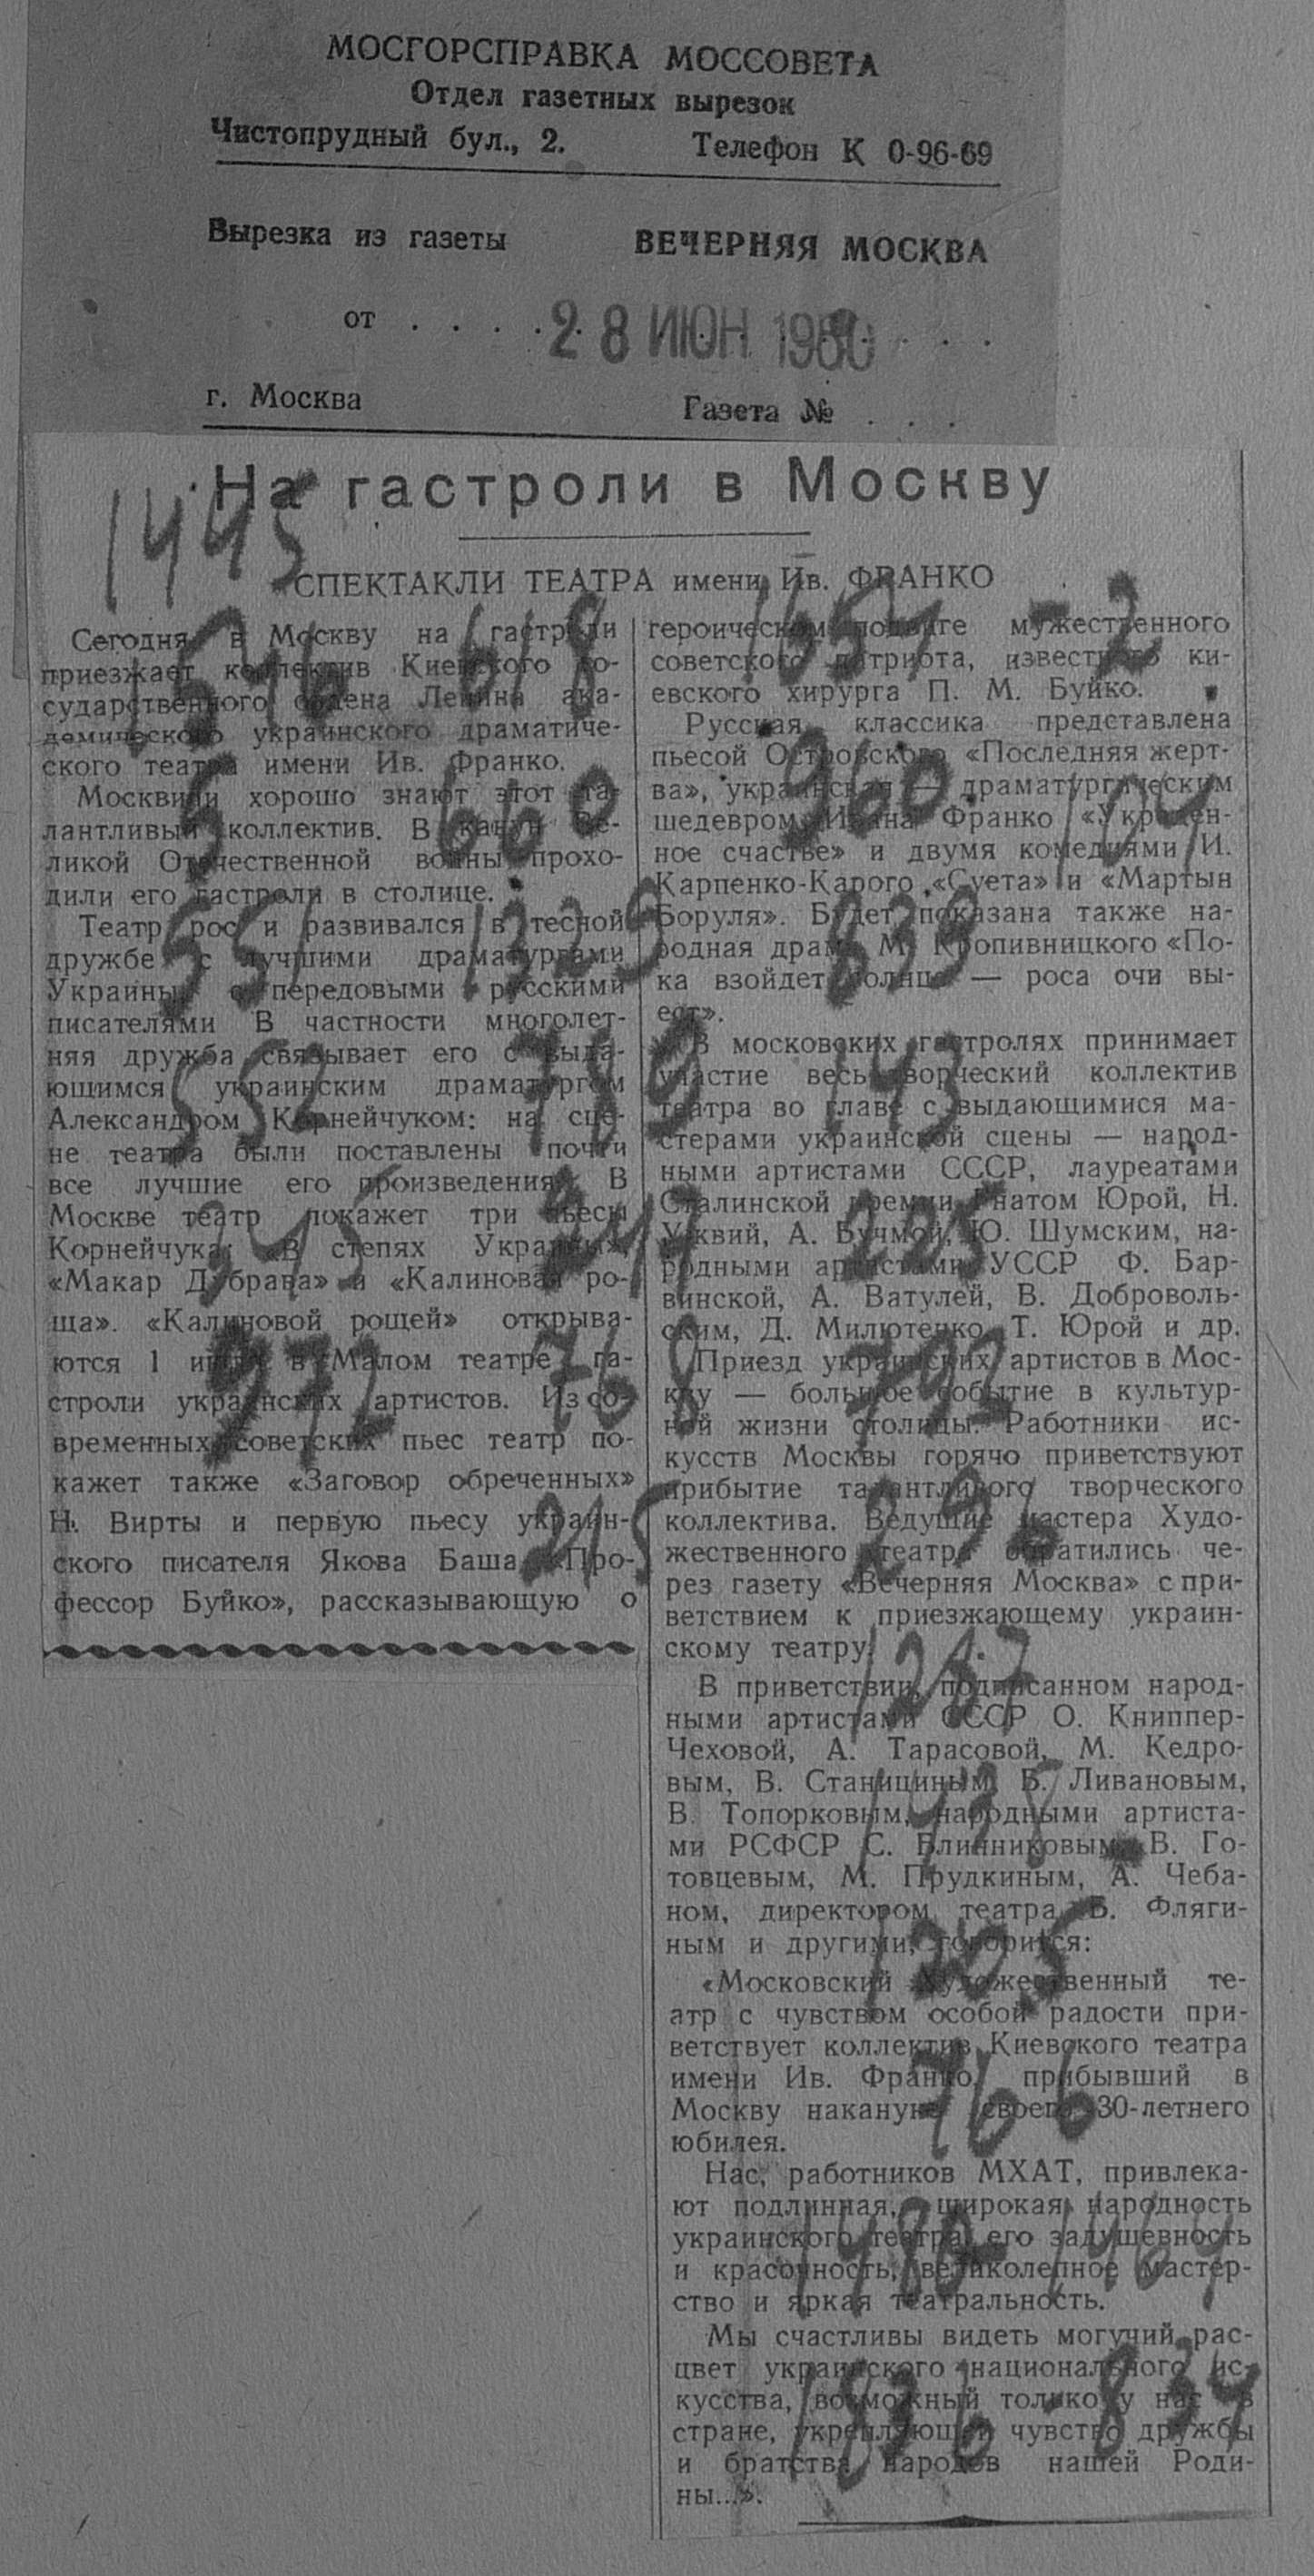 МОСГОРСПРАВКА МОССОВЕТА
Отдел газетных вырезок
Чистопрудный бул., 2. Телефон К 0-96-69
Вырезка из газеты ВЕЧЕРНЯЯ МОСКВА
от . . . . 28 ИЮН 1950 . . .
г. Москва Газета № . . .
На гастроли в Москву
1445
СПЕКТАКЛИ ТЕАТРА имени Ив. ФРАНКО
Сегодня в Москву на гастроли
приезжает коллектив Киевского го-
сударственного ордена Ленина ака-
демического украинского драматиче-
ского театра имени Ив. Франко.
Москвичи хорошо знают этот та-
лантливый коллектив. В канун Ве-
ликой Отечественной войны прохо-
дили его гастроли в столице.
Театр рос и развивался в тесной
дружбе с лучшими драматургами
Украины, с передовыми русскими
писателями В частности многолет-
няя дружба связывает его с выда-
ющимся украинским драматургом
Александром Корнейчуком: на сце-
не театра были поставлены почти
все лучшие его произведения. В
Москве театр покажет три пьесы
Корнейчука: «В степях Украины»,
«Макар Дубрава» и «Калиновая ро-
ща». «Калиновой рощей» открыва-
ются 1 июля в Малом театре га-
строли украинских артистов. Из со-
временных советских пьес театр по-
кажет также «Заговор обреченных»
Н. Вирты и первую пьесу украин-
ского писателя Якова Баша «Про-
фессор Буйко», рассказывающую о
героическом подвиге мужественного
советского патриота, известного ки-
евского хирурга П. М. Буйко.
Русская классика представлена
пьесой Островского «Последняя жерт-
ва», украинская — драматургическим
шедевром Ивана Франко «Украден-
ное счастье» и двумя комедиями И.
Карпенко-Карого «Суета» и «Мартын
Боруля». Будет показана также на-
родная драма М. Кропивницкого «По-
ка взойдет солнце — роса очи вы-
ест».
В московских гастролях принимает
участие весь творческий коллектив
театра во главе с выдающимися ма-
стерами украинской сцены — народ-
ными артистами СССР, лауреатами
Сталинской премии Гнатом Юрой, Н.
Ужвий, А. Бучмой, Ю. Шумским, на-
родными артистами УССР Ф. Бар-
винской, А. Ватулей, В. Доброволь-
ским, Д. Милютенко, Т. Юрой и др.
Приезд украинских артистов в Мос-
кву — большое событие в культур-
ной жизни столицы. Работники ис-
кусств Москвы горячо приветствуют
прибытие талантливого творческого
коллектива. Ведущие мастера Худо-
жественного театра обратились че-
рез газету «Вечерняя Москва» с при-
ветствием к приезжающему украин-
скому театру.
В приветствии, подписанном народ-
ными артистами СССР О. Книппер-
Чеховой, А. Тарасовой, М. Кедро-
вым, В. Станициным, Б. Ливановым,
В. Топорковым, народными артиста-
ми РСФСР С. Блинниковым, В. Го-
товцевым, М. Прудкиным, А. Чеба-
ном, директором театра Флягин-
ным и другими, говорится:
«Московский Художественный те-
атр с чувством особой радости при-
ветствует коллектив Киевского театра
имени Ив. Франко, прибывший в
Москву накануне своего 30-летнего
юбилея.
Нас, работников МХАТ, привлека-
ют подлинная, широкая народность
украинского театра, его задушевность
и красочность, великолепное мастер-
ство и яркая театральность.
Мы счастливы видеть могучий рас-
цвет украинского национального ис-
кусства, возможный только у нас в
стране, укрепляющей чувство дружбы
и братства народов нашей Роди-
ны...».